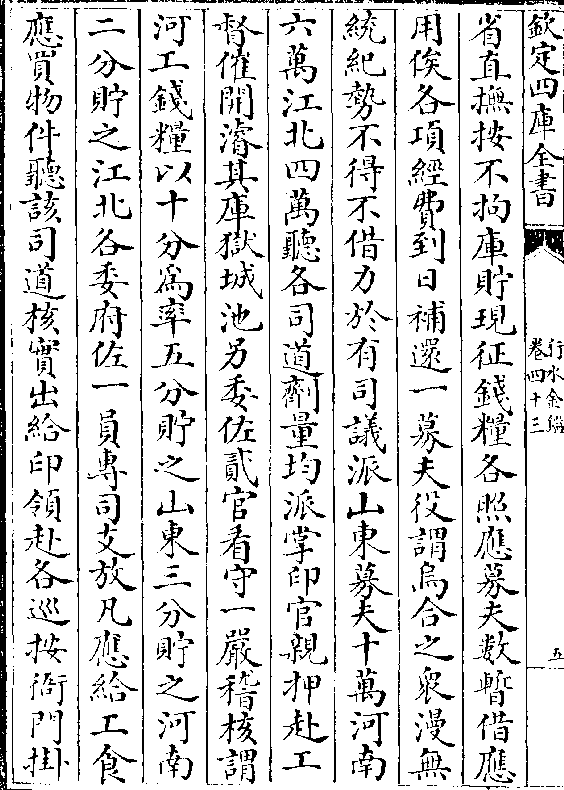 欽定四庫全書
行水金鑑
卷四十三
五
省直撫按不拘庫貯現征錢糧各照應募夫數暫借應
用俟各項經費到日補還一募夫役謂烏合之衆漫無
統紀勢不得不借力於有司議派山東募夫十萬河南
六萬江北四萬聽各司道劑量均派掌印官親押赴工
督催開濬其庫獄城池另委佐貳官看守一嚴稽核謂
河工錢糧以十分為率五分貯之山東三分貯之河南
二分貯之江北各委府佐一員專司支放凡應給工食
應買物件聽該司道核實出給印領赴各巡按衙門掛